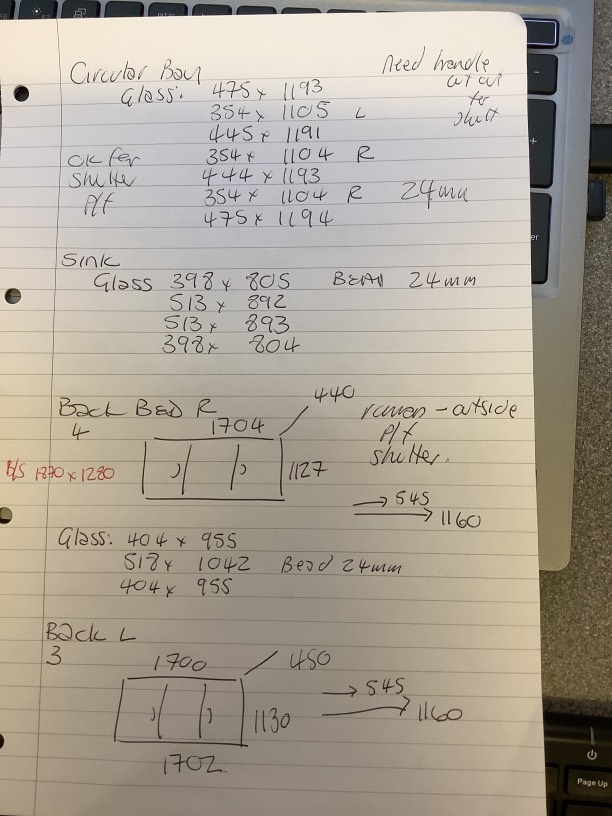 Circular Bay
Need handle
cut out
for
shutt
Glass: 475 x 1193
354 x 1105 L
445 x 1191
OK for
354 x 1104 R
shutter
444 x 1193
P/f
354 x 1104 R 24mm
475 x 1194
Sink
Glass 398 x 805 BEAD 24mm
513 x 892
513 x 893
398 x 804
Back BED R
4
1704
440
outside
P/f
shutter.
1127
1870 x 1280
→ 545
→ 1160
Glass: 404 x 955
518 x 1042 Bead 24mm
404 x 955
Back L
3
1700
450
→ 545
1130
→ 1160
1702
Page Up